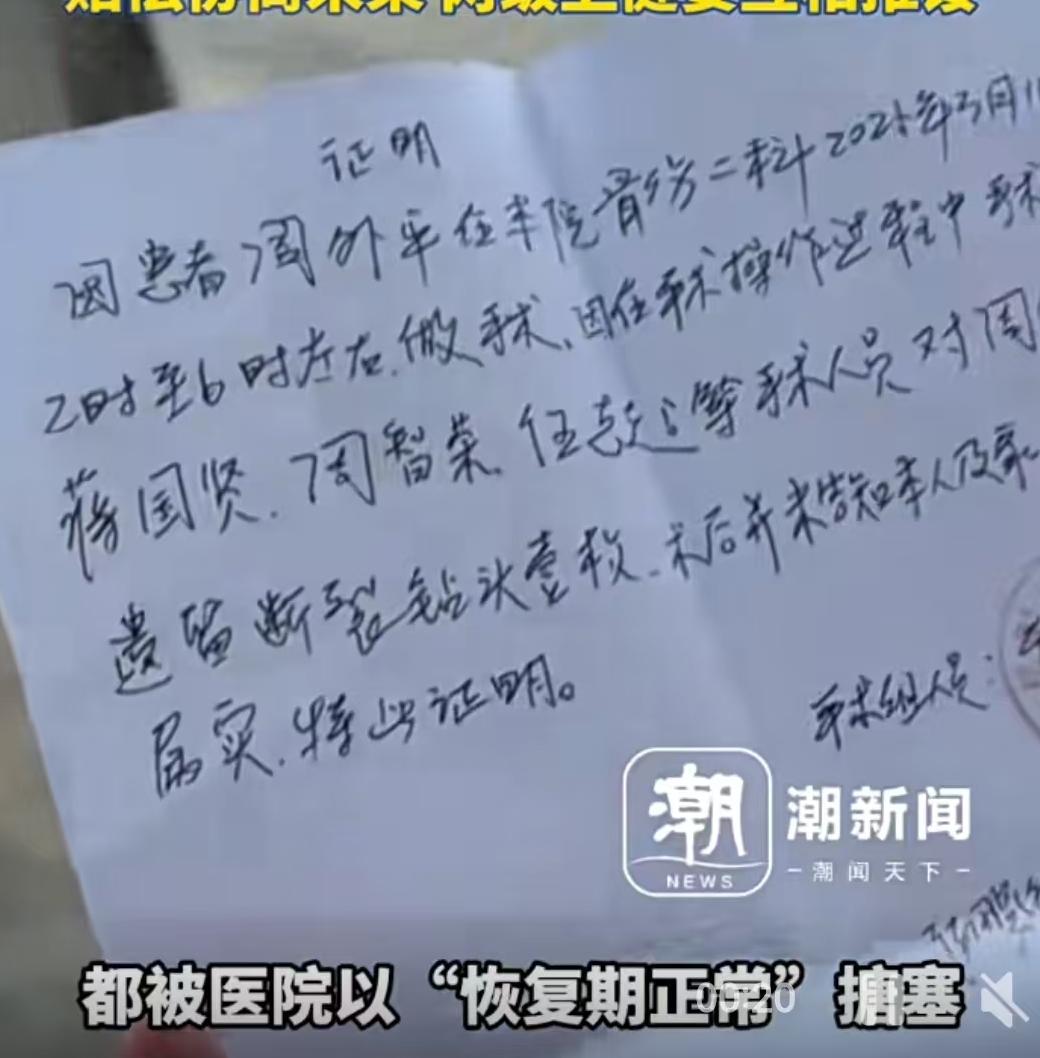 赔偿协商未果 两级卫健委互相推诿
证明
因患者周外平在本院骨伤二科2025年3月1
2时至6时左右.做手术、因在手术操作过程中 手术
蒋国贤.周智荣、任等手术人员对周
遗留断裂钻头壹枚.术后并未告知本人及家
属实.特此证明。
手术组人员:
潮
NEWS
潮新闻
潮闻天下
都被医院以“恢复期正常”搪塞
00:20